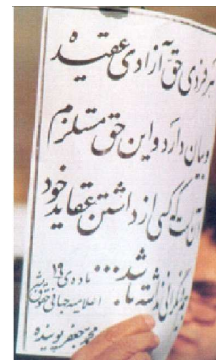 هر فردی حق آزادی عقیده
و بیان دارد و این حق مستلزم
آن است که کسی از داشتن عقاید خود
بیم و نگرانی نداشته باشد...
ماده‌ی ۱۹
اعلامیه جهانی حقوق بشر
محمد جعفر پوینده